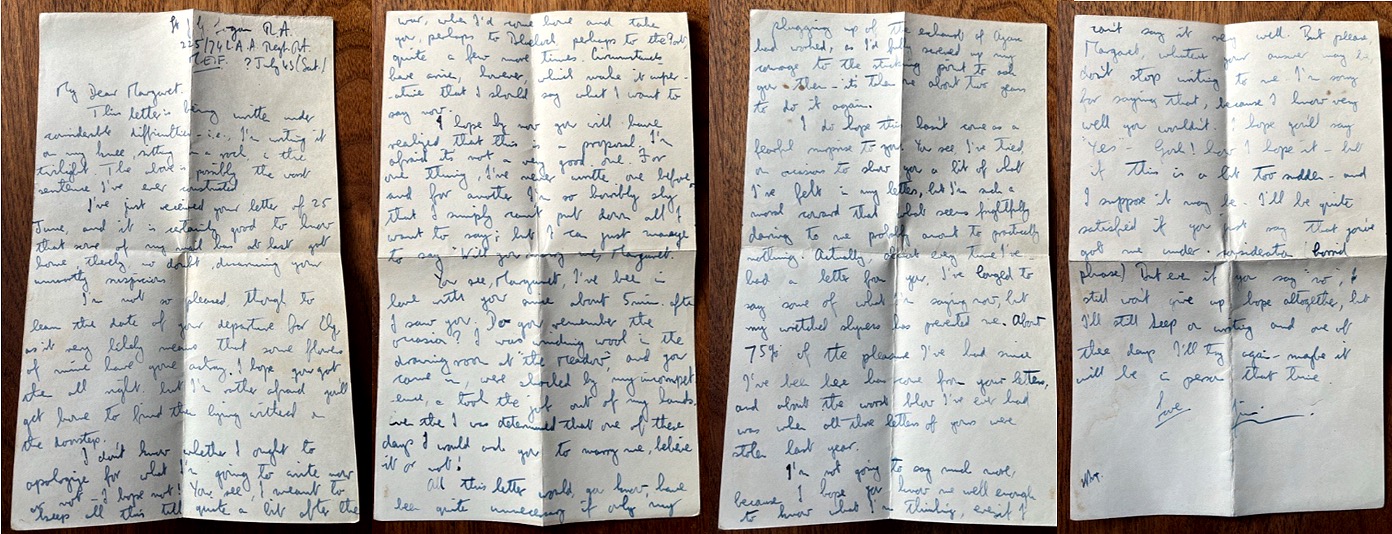 R.A.
225/74 L.A.A. Regt. R.A.
M.E.F. ? July 43 (Sat.)
My Dear Margaret
This letter is being written under
considerable difficulties - i.e., I'm writing it
on my knee, sitting on a rock, in the
twilight. The above - possibly the worst
sentence I've ever constructed
I've just received your letter of 25
June, and it is certainly good to know
that some of my mail has at last got
home thereby, no doubt, disarming your
unworthy suspicions
I'm not so pleased though to
learn the date of your departure for
as it very likely means that some flowers
of mine have gone astray. I hope you got
them all right, but I'm rather afraid you'll
get home to find them lying withered on
the doorstep.
I don't know whether I ought to
apologize for what I'm going to write now
or not - I hope not! You see, I meant to
keep all this till quite a bit after the
war, when I'd come home and take
you, perhaps to perhaps to the
quite a few more times. Circumstances
have arisen, however, which make it imper-
-ative that I should say what I want to
say now.
I hope by now you will have
realized that this is a proposal. I'm
afraid its not a very good one. For
one thing, I've never written one before,
and for another I'm so horribly shy
that I simply can't put down all I
want to say; but I can just manage
to say "Will you marry me, Margaret."
You see, Margaret, I've been in
love with you since about 5 min. after
I saw you. Do you remember the
occasion? I was winding wool in the
drawing room at the Meadow, and you
came in, were shocked by my incompet-
ence, & took the job out of my hands.
ever since I was determined that one of these
days I would ask you to marry me, believe
it or not!
All this letter would, you know, have
been quite unnecessary if only my
plugging up of the exhaust of
had worked, as I'd fully screwed up my
courage to the sticking point to ask
you then - its taken me about two years
to do it again.
I do hope this hasn't come as a
fearful surprise to you. You see, I've tried
on occasions to show you a bit of what
I've felt in my letters, but I'm such a
moral coward that what seems frightfully
daring to me probably amounts to practically
nothing. Actually, about every time I've
had a letter from you, I've longed to
say some of what I'm saying now, but
my wretched shyness has prevented me. About
75% of the pleasure I've had since
I've been here has come from your letters,
and about the worst blow I've ever had
was when all those letters of yours were
stolen last year.
I'm not going to say much more,
because I hope you know me well enough
to know what I'm thinking, even if I
can't say it very well. But please,
Margaret, whatever your answer may be,
don't stop writing to me. I'm sorry
for saying that, because I know very
well you wouldn't. I hope you'll say
"Yes" - Gosh! how I hope it - but
if this is a bit too sudden - and
I suppose it may be - I'll be quite
satisfied if you just say that you've
got me under consideration (horrid
phrase) But even if you say "no", I
still won't give up hope altogether, but
I'll still keep on writing and one of
these days I'll try again - maybe it
will be in person that time.
Love
Jim.